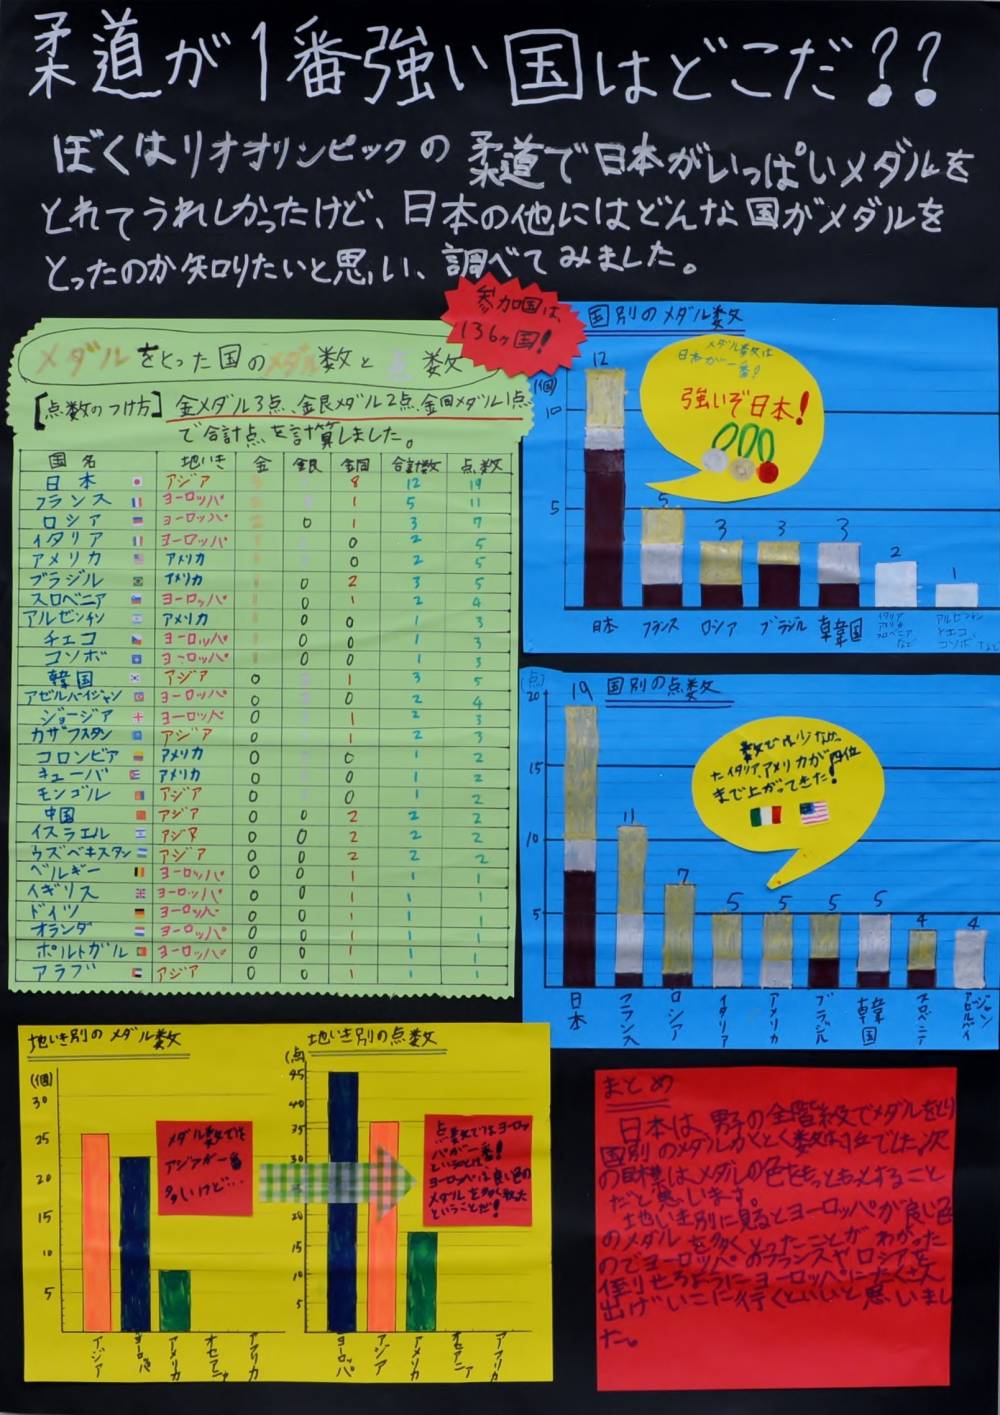 柔道が1番強い国はどこだ??
ぼくはリオオリンピックの柔道で日本がいっぱいメダルを
とれてうれしかったけど、日本の他にはどんな国がメダルを
とったのか知りたいと思い、調べてみました。
参加国は、
136ヶ国!
メダルをとった国のメダル数と点数
[点数のつけ方] 金メダル3点、銀メダル2点、銅メダル1点
で合計点を計算しました。
国名 地いき 金 銀 銅 合計数 点数
日本 アジア 8 12 19
フランス ヨーロッパ 1 5 11
ロシア ヨーロッパ 0 1 3 7
イタリア ヨーロッパ 0 2 5
アメリカ アメリカ 0 2 5
ブラジル アメリカ 0 2 3 5
スロベニア ヨーロッパ 0 1 2 4
アルゼンチン アメリカ 0 0 1 3
チェコ ヨーロッパ 0 0 1 3
コソボ ヨーロッパ 0 0 1 3
韓国 アジア 0 1 3 5
アゼルバイジャン ヨーロッパ 0 0 2 4
ジョージア ヨーロッパ 0 1 2 3
カザフスタン アジア 0 1 2 3
コロンビア アメリカ 0 0 1 2
キューバ アメリカ 0 0 1 2
モンゴル アジア 0 0 1 2
中国 アジア 0 0 2 2 2
イスラエル アジア 0 0 2 2 2
ウズベキスタン アジア 0 0 2 2 2
ベルギー ヨーロッパ 0 0 1 1 1
イギリス ヨーロッパ 0 0 1 1 1
ドイツ ヨーロッパ 0 0 1 1 1
オランダ ヨーロッパ 0 0 1 1 1
ポルトガル ヨーロッパ 0 0 1 1 1
アラブ アジア 0 0 1 1 1
国別のメダル数
メダル数は
日本が一番!
強いぞ日本!
(個)
10
5
12 5 3 3 3 2 1
日本 フランス ロシア ブラジル 韓国
イタリア
アメリカ
スロベニア
など
アルゼンチン
チェコ
コソボ など
国別の点数
(点)
20
15
10
5
19 11 7 5 5 5 5 4 4
数では少なかっ
たイタリア、アメリカが4位
まで上がってきた!
日本 フランス ロシア イタリア アメリカ ブラジル 韓国 スロベニア アゼルバイジャン
地いき別のメダル数
(個)
30
25
20
15
10
5
メダル数では
アジアが一番
多いけど…
アジア ヨーロッパ アメリカ オセアニア アフリカ
地いき別の点数
(点)
45
40
35
30
20
15
10
5
点数ではヨーロッ
パが一番!
ということは、
ヨーロッパは良い色の
メダルを多く取った
ということだ!
ヨーロッパ アジア アメリカ オセアニア アフリカ
まとめ
日本は、男子の全階級でメダルをとり
国別のメダルかくとく数は1位でした。次
の目標は、メダルの色をもっとよくすること
だと思います。
地いき別に見るとヨーロッパが良い色
のメダルを多くとったことがわかった
のでヨーロッパのフランスやロシアを
倒せるようにヨーロッパにたくさん
出げいこに行くといいと思いまし
た。